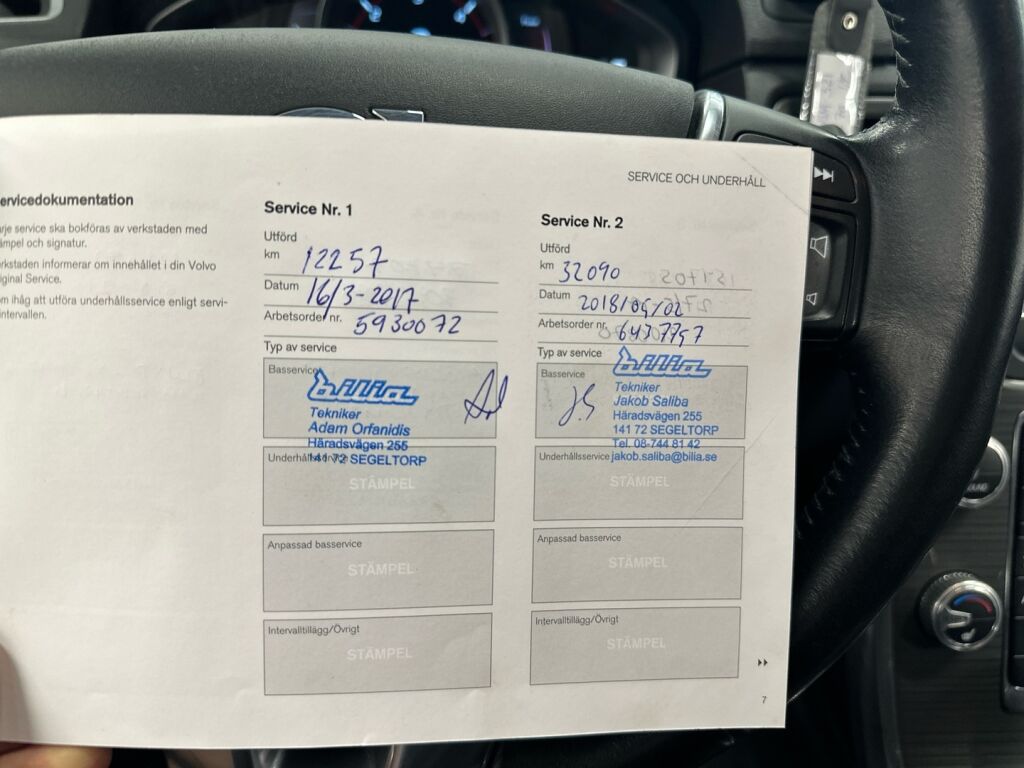 SERVICE OCH UNDERHÅLL
ervicedokumentation
rje service ska bokföras av verkstaden med
ämpel och signatur.
rkstaden informerar om innehållet i din Volvo
iginal Service.
om ihåg att utföra underhållsservice enligt servi-
intervallen.
Service Nr. 1
Utförd
km 12257
Datum 16/3-2017
Arbetsorder nr. 5930072
Typ av service
Basservice
bilia
Tekniker
Adam Orfanidis
Häradsvägen 255
141 72 SEGELTORP
Underhållsservice
STÄMPEL
Anpassad basservice
STÄMPEL
Intervalltillägg/Övrigt
STÄMPEL
Service Nr. 2
Utförd
km 32090
Datum 2018/05/02
Arbetsorder nr. 6437797
Typ av service
Basservice
JS
bilia
Tekniker
Jakob Saliba
Häradsvägen 255
141 72 SEGELTORP
Tel. 08-744 81 42
jakob.saliba@bilia.se
Underhållsservice
STÄMPEL
Anpassad basservice
STÄMPEL
Intervalltillägg/Övrigt
STÄMPEL
7